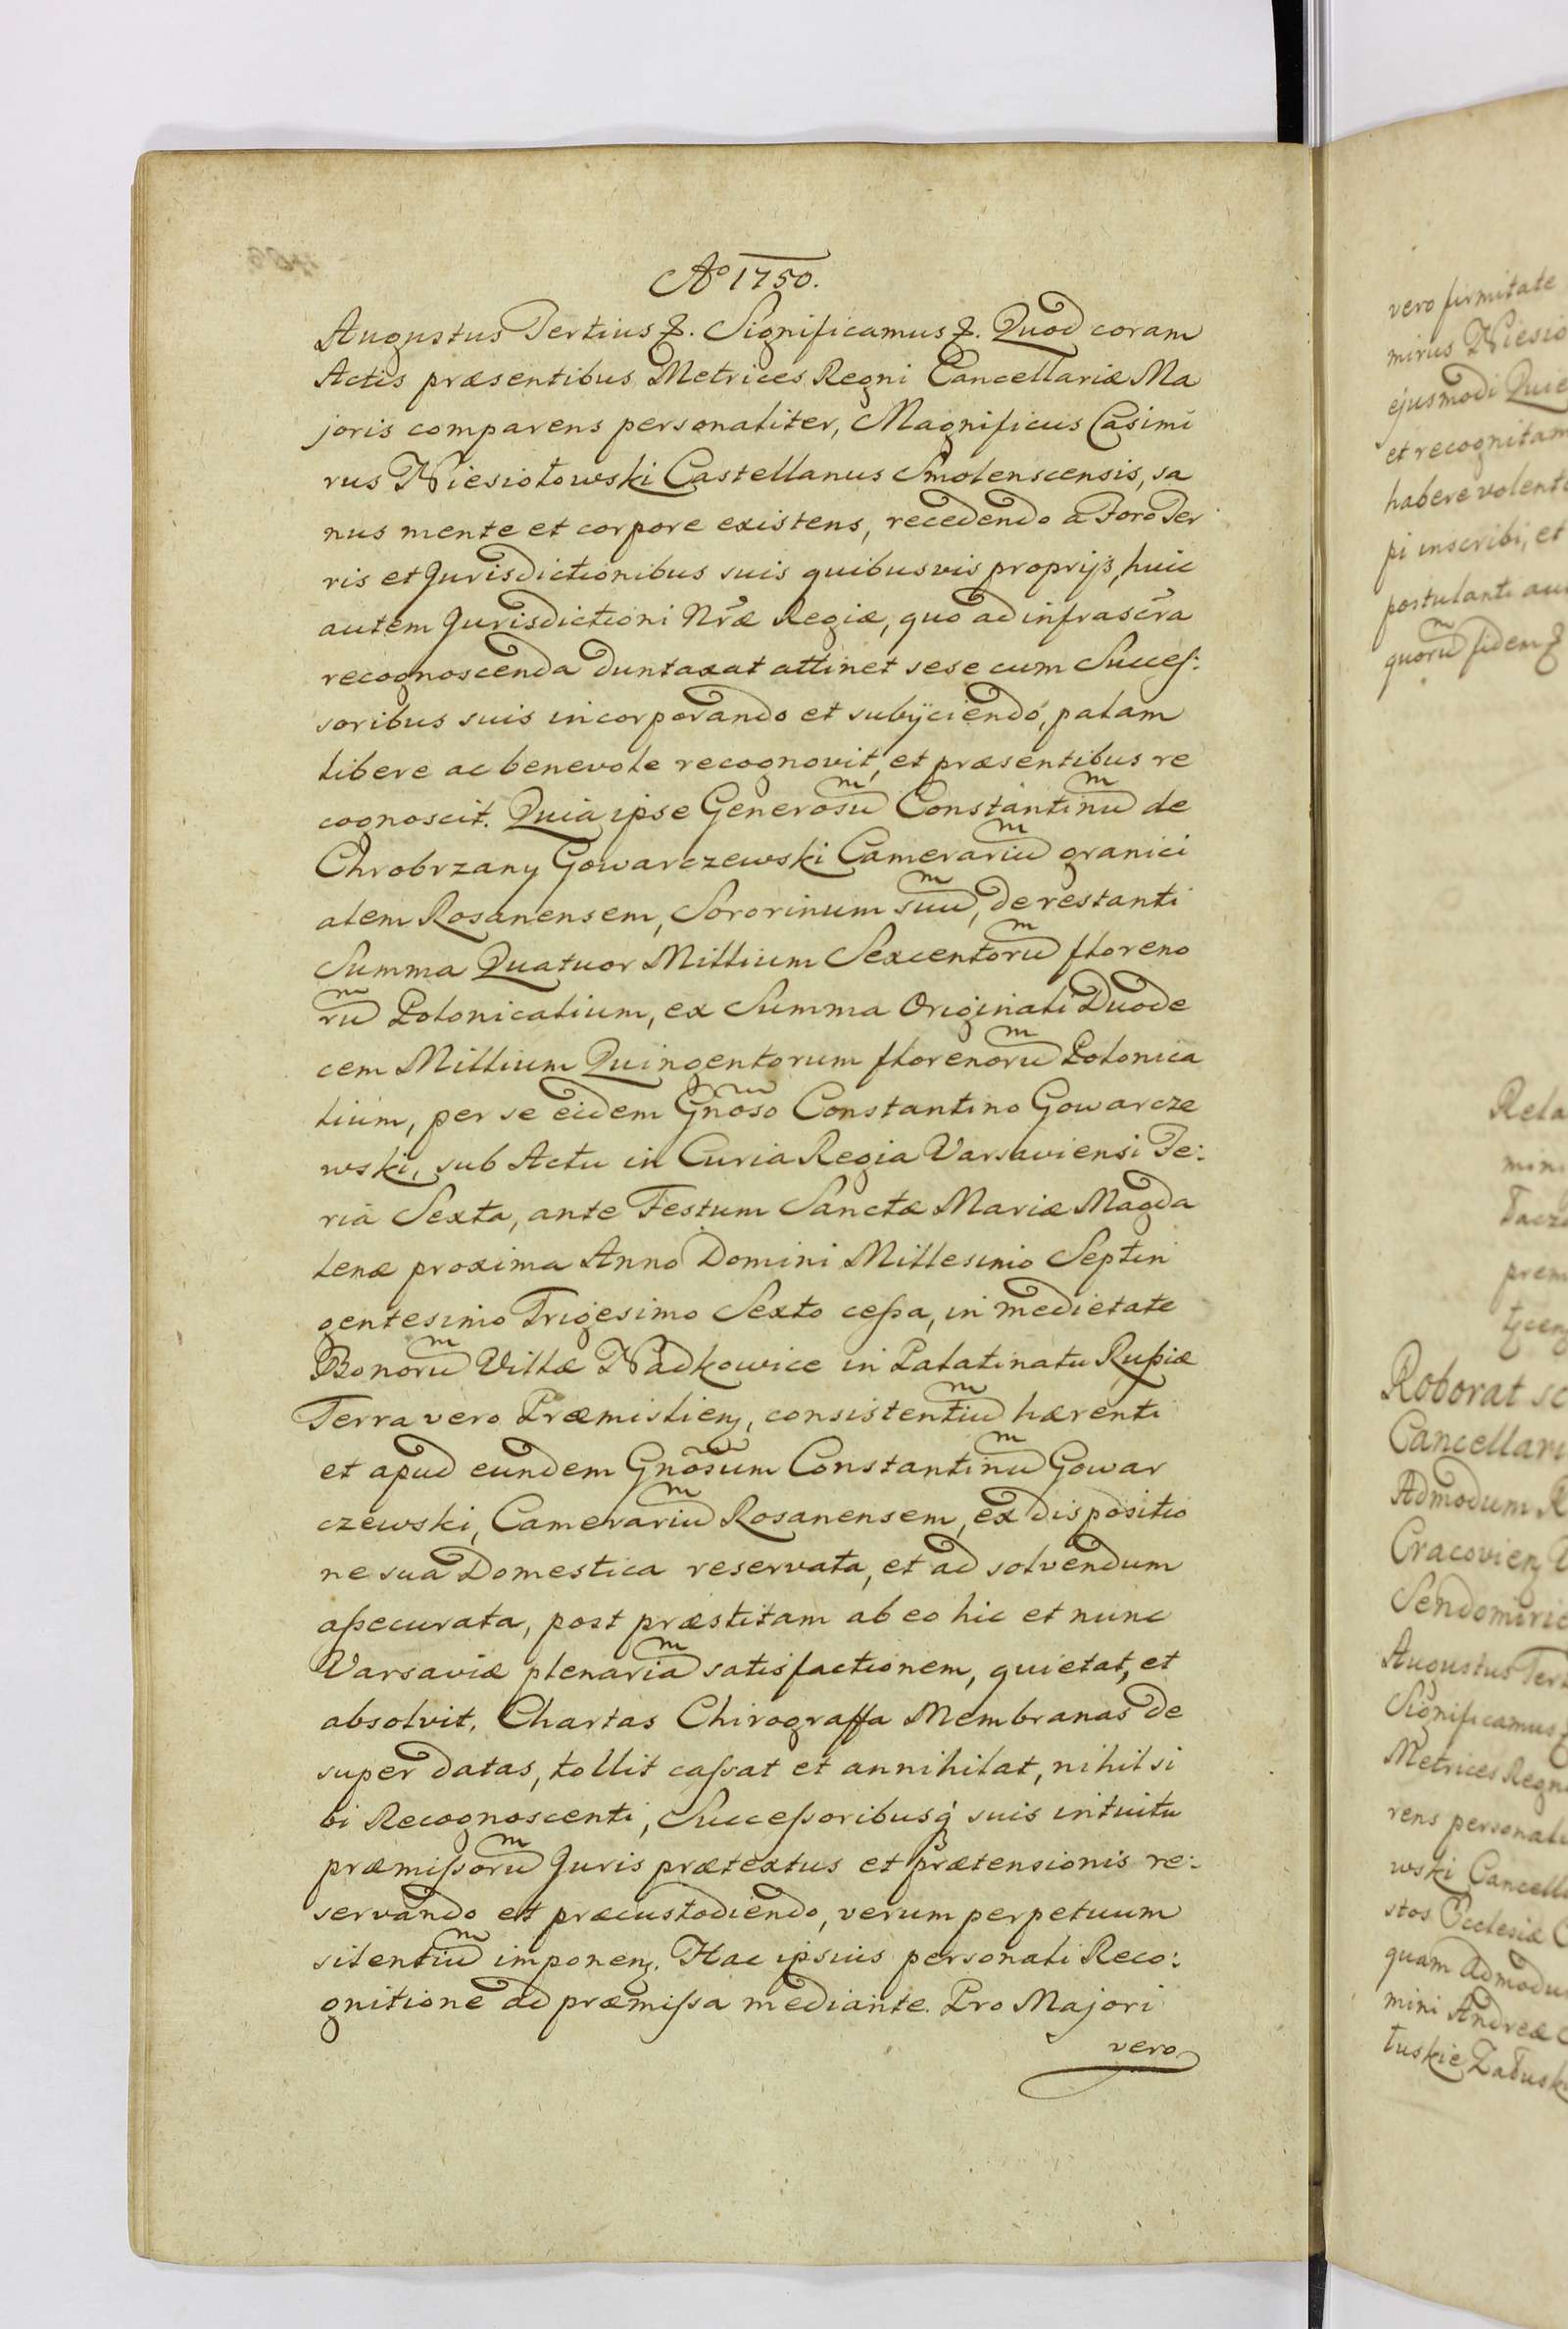 Aº 1750.
Augustus Tertius &. Significamus &. Quod coram
Actis præsentibus Metrices Regni Cancellariæ Ma
joris comparens personaliter, Magnificus Casimi
rus Niesiołowski Castellanus Smolenscensis, sa
nus mente et corpore existens, recedendo a Foro Ter
ris et Jurisdictionibus suis quibusvis proprijs, huic
autem Jurisdictioni Nr̃æ Regiæ, quo ad infrascr̃a
recognoscenda duntaxat attinet sese cum Succes:
soribus suis incorporando et subijciendo, palam
libere ac benevole recognovit, et præsentibus re
cognoscit. Quia ipse Generosũ Constantinũ de
Chrobrzany Gowarczewski Camerariũ granici
alem Rosanensem, Sororinum suũ, de restanti
Summa Quatuor Millium Sexcentorũ floreno
rũ Polonicalium, ex Summa Originali Duode
cem Millium Quingentorum florenorũ Polonica
lium, per se eidem Gñoso Constantino Gowarcze
wski, sub Actu in Curia Regia Varsaviensi Fe:
ria Sexta, ante Festum Sanctæ Mariæ Magda
lenæ proxima Anno Domini Millesimo Septin
gentesimo Trigesimo Sexto cessa, in medietate
Bonorũ Villæ Nadkowice in Palatinatu Russiæ
Terra vero Præmislien̄, consistentiũ hærenti
et apud eundem Gñosum Constantinũ Gowar
czewski, Camerariũ Rosanensem, ex dispositio
ne sua Domestica reservata, et ad solvendum
assecurata, post præstitam ab eo hic et nunc
Varsaviæ plenariã satisfactionem, quietat, et
absolvit, Chartas Chirograffa Membranas de
super datas, tollit cassat et annihilat, nihil si
bi Recognoscenti, Successoribusq́ suis intuitu
præmissorũ Juris prætextus et prætensionis re:
servando et præcustodiendo, verum perpetuum
silentiũ imponen̄. Hac ipsius personali Reco:
gnitione ad præmissa mediante. Pro Majori
vero
vero firmitate
mirus Niesio
ejusmodi Quie
et recognitam
habere volent
pi inscribi, et
postulanti au
quorũ fidem &
Rela
mini
prem
Roborat sc
Cancellari
Admodum R
Cracovien̄
Sendomirie
Augustus Ter
Significamus
Metrices Regn
rens personali
wski Cancell
stos Ecclesiæ C
quam Admodu
mini Andreæ
łuskie Załusk